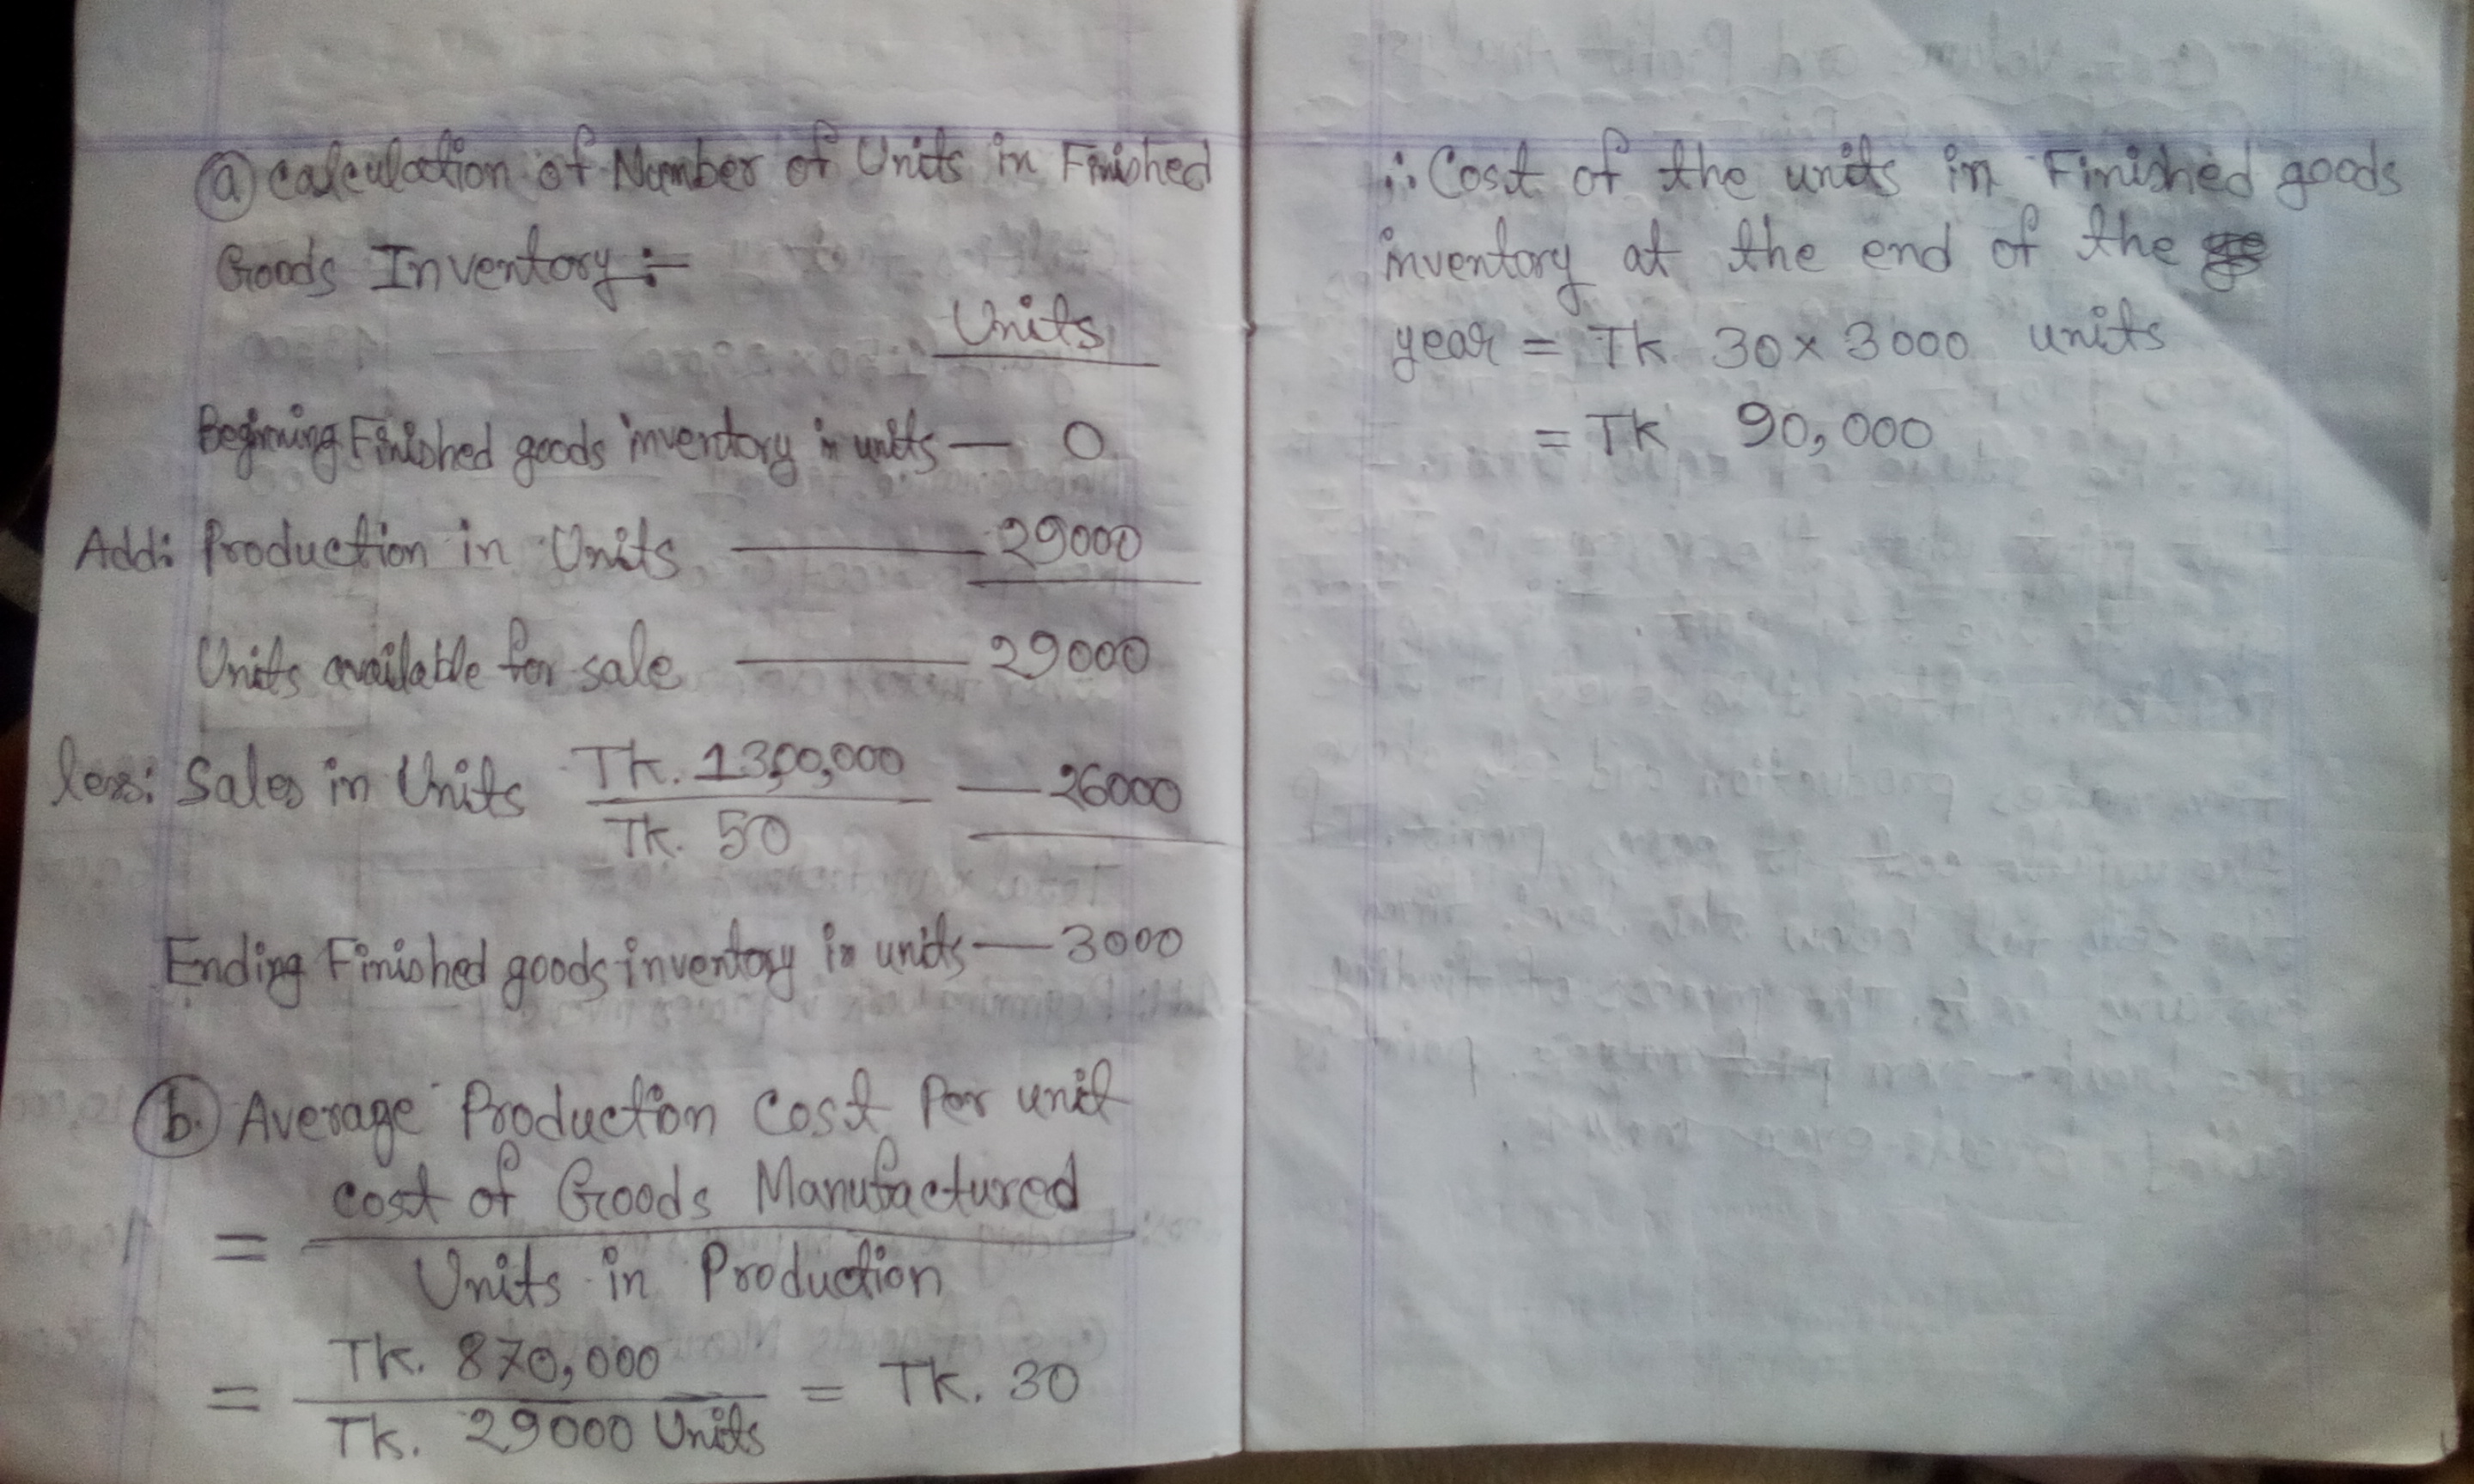 (a) Calculation of Number of Units in Finished
Goods Inventory :-
Units
Beginning Finished goods inventory in units — 0
Add: Production in Units — 29000
Units available for sale — 29000
less: Sales in Units Tk. 1300,000 / Tk. 50 — 26000
Ending Finished goods inventory in units — 3000
(b.) Average Production Cost Per unit
= Cost of Goods Manufactured / Units in Production
= Tk. 870,000 / Tk. 29000 Units = Tk. 30
∴ Cost of the units in Finished goods
inventory at the end of the
year = Tk 30 × 3000 units
= Tk 90,000